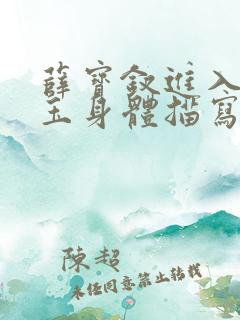 薛寶釵進入
玉身體描寫
陳超
未經同意禁止轉載